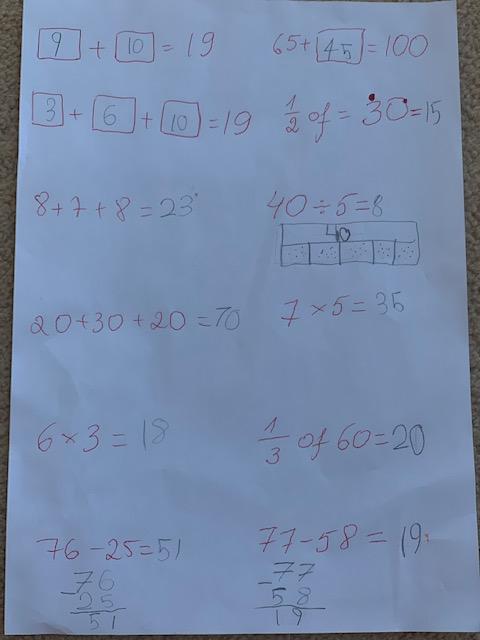 9 + 10 = 19
65+ 45 = 100
3 + 6 + 10 = 19
1/2 of = 30=15
8+7+8=23
40÷5=8
40
20+30+20=70
7×5=35
6×3=18
1/3 of 60=20
76-25=51
-76
25
51
77-58=19
-77
58
19